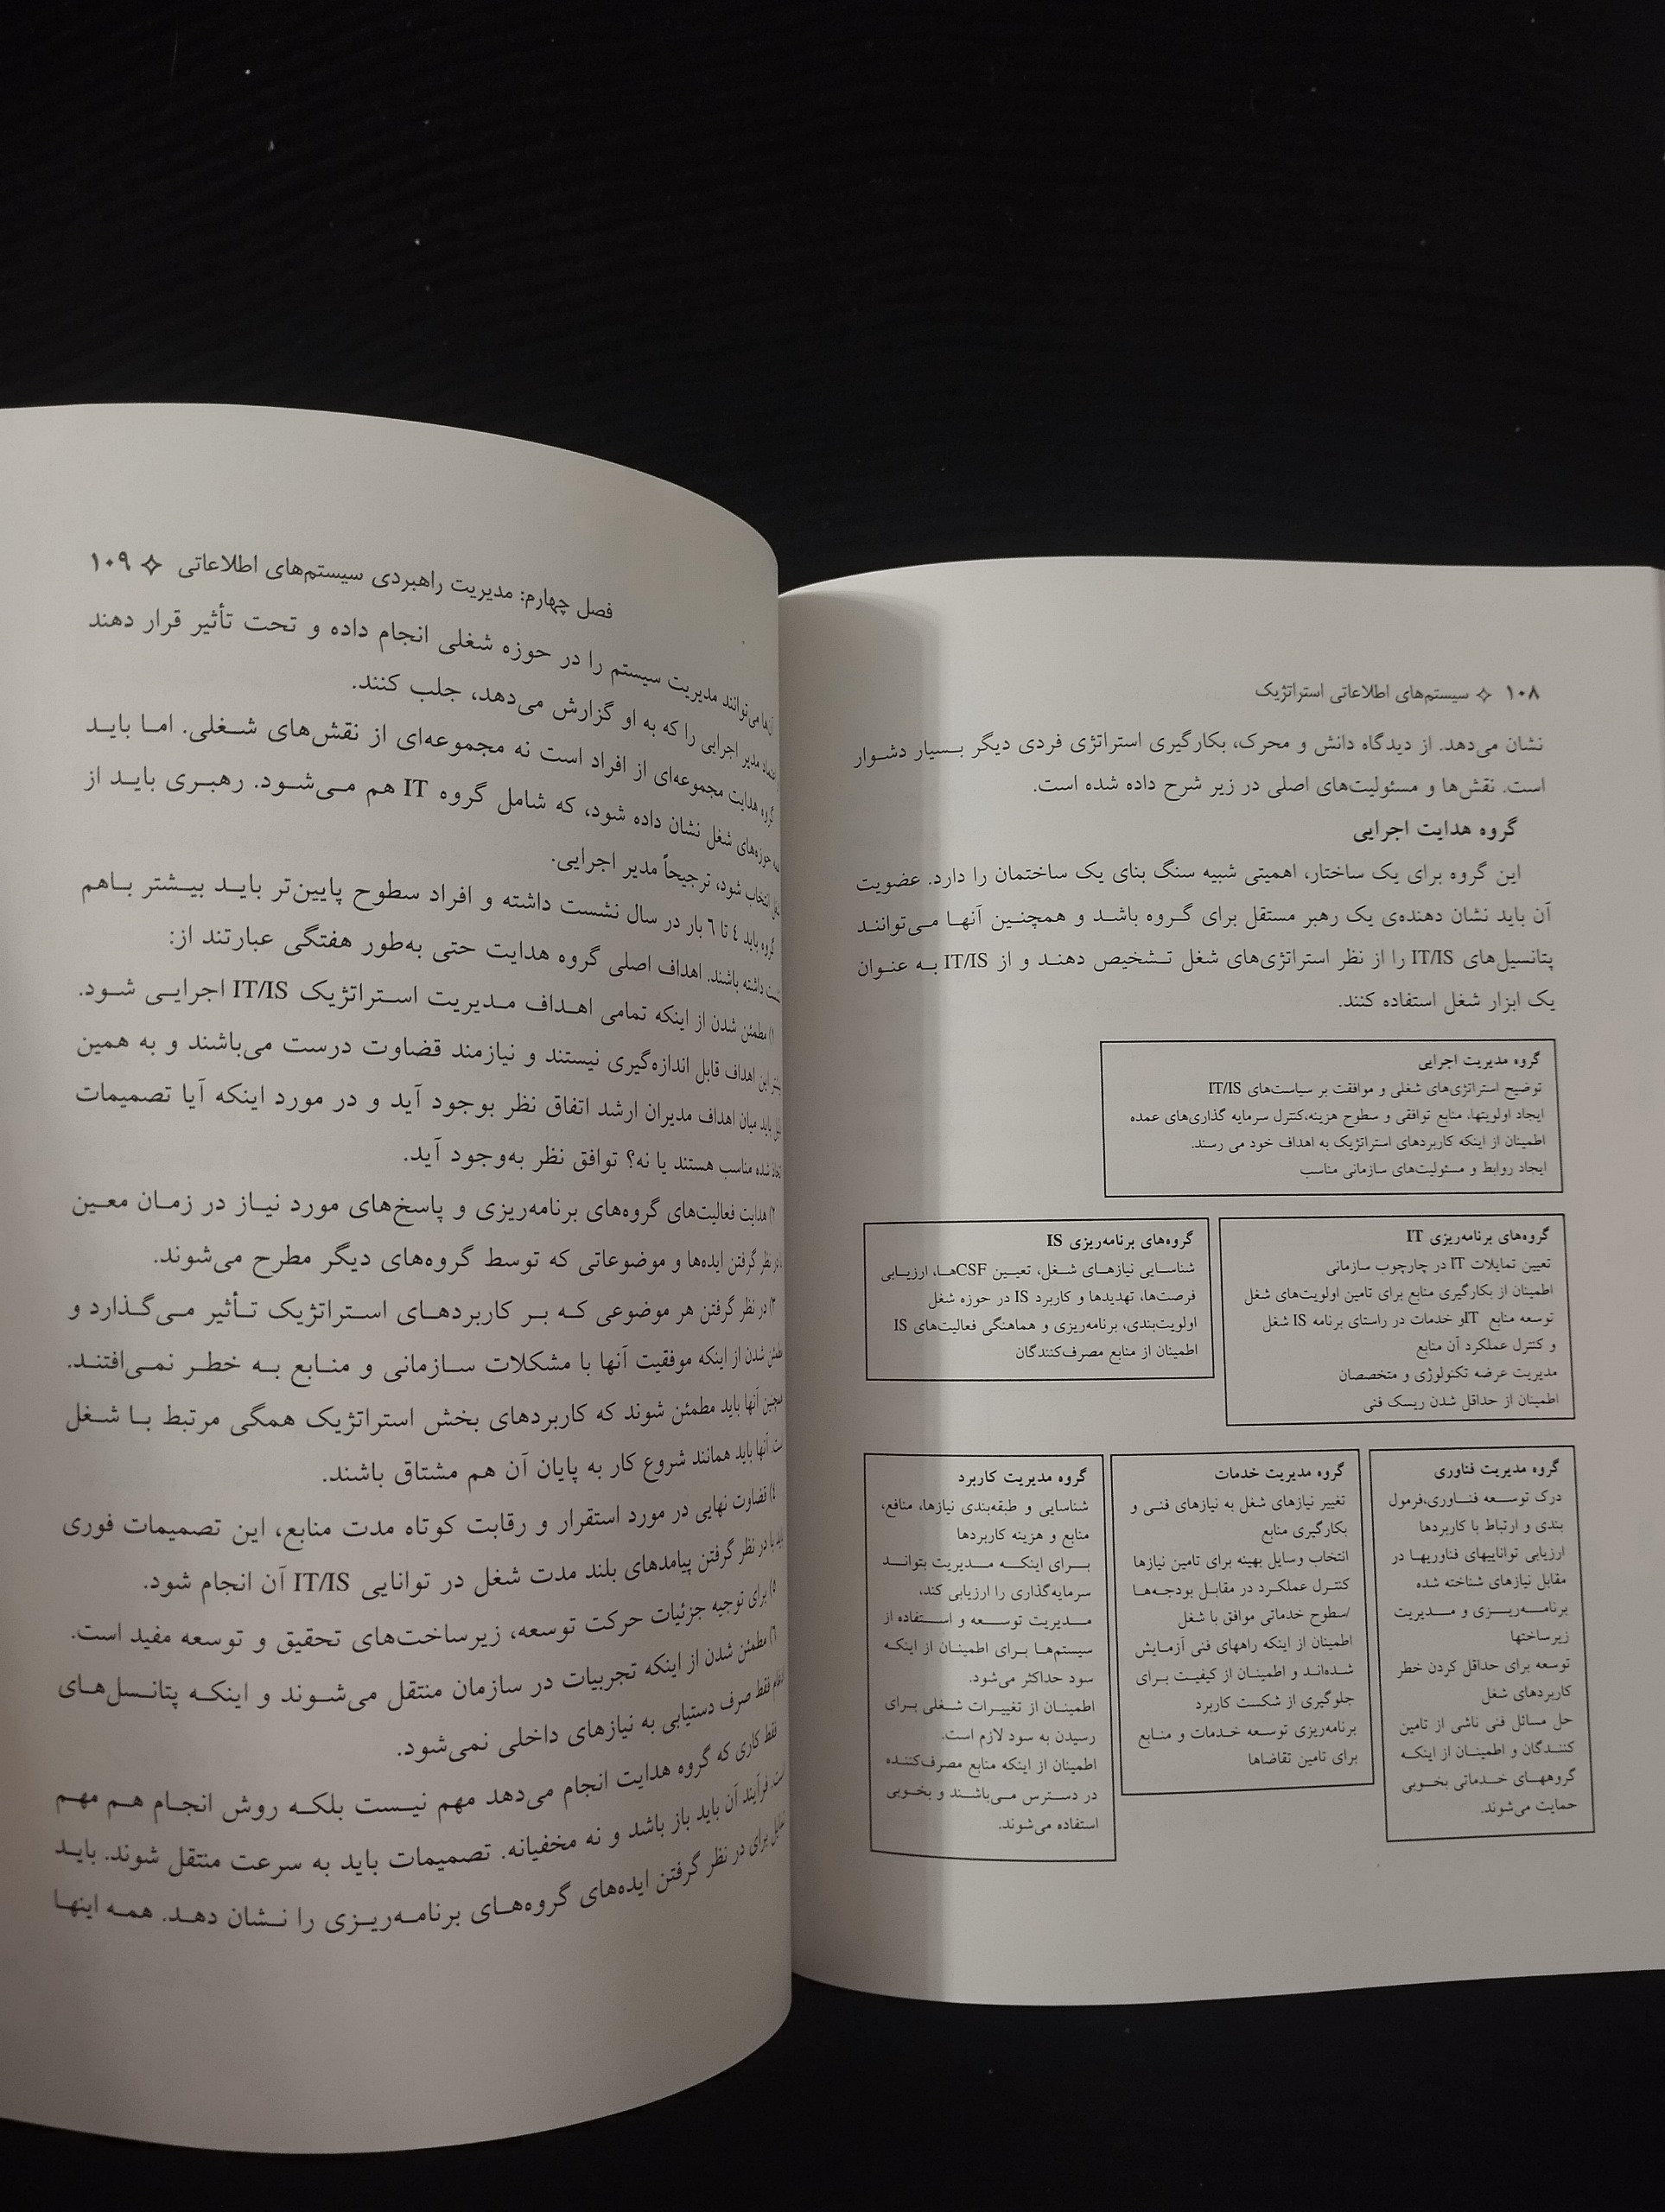 ۱۰۸ ✧ سیستم‌های اطلاعاتی استراتژیک
نشان می‌دهد. از دیدگاه دانش و محرک، بکارگیری استراتژی فردی دیگر بسیار دشوار
است. نقش‌ها و مسئولیت‌های اصلی در زیر شرح داده شده است.
گروه هدایت اجرایی
این گروه برای یک ساختار، اهمیتی شبیه سنگ بنای یک ساختمان را دارد. عضویت
آن باید نشان دهنده‌ی یک رهبر مستقل برای گروه باشد و همچنین آنها می‌توانند
پتانسیل‌های IT/IS را از نظر استراتژی‌های شغل تشخیص دهند و از IT/IS به عنوان
یک ابزار شغل استفاده کنند.
گروه مدیریت اجرایی
توضیح استراتژی‌های شغلی و موافقت بر سیاست‌های IT/IS
ایجاد اولویتها، منابع توافقی و سطوح هزینه،کنترل سرمایه گذاری‌های عمده
اطمینان از اینکه کاربردهای استراتژیک به اهداف خود می رسند.
ایجاد روابط و مسئولیت‌های سازمانی مناسب
گروه‌های برنامه‌ریزی IT
تعیین تمایلات IT در چارچوب سازمانی
اطمینان از بکارگیری منابع برای تامین اولویت‌های شغل
توسعه منابع ITو خدمات در راستای برنامه IS شغل
و کنترل عملکرد آن منابع
مدیریت عرضه تکنولوژی و متخصصان
اطمینان از حداقل شدن ریسک فنی
گروه‌های برنامه‌ریزی IS
شناسایی نیازهای شغل، تعیین CSFها، ارزیابی
فرصت‌ها، تهدیدها و کاربرد IS در حوزه شغل
اولویت‌بندی، برنامه‌ریزی و هماهنگی فعالیت‌های IS
اطمینان از منابع مصرف‌کنندگان
گروه مدیریت فناوری
درک توسعه فناوری،فرمول
بندی و ارتباط با کاربردها
ارزیابی تواناییهای فناوریها در
مقابل نیازهای شناخته شده
برنامه‌ریزی و مدیریت
زیرساختها
توسعه برای حداقل کردن خطر
کاربردهای شغل
حل مسائل فنی ناشی از تامین
کنندگان و اطمینان از اینکه
گروههای خدماتی بخوبی
حمایت می‌شوند.
گروه مدیریت خدمات
تغییر نیازهای شغل به نیازهای فنی و
بکارگیری منابع
انتخاب وسایل بهینه برای تامین نیازها
کنترل عملکرد در مقابل بودجه‌ها
/سطوح خدماتی موافق با شغل
اطمینان از اینکه راههای فنی آزمایش
شده‌اند و اطمینان از کیفیت برای
جلوگیری از شکست کاربرد
برنامه‌ریزی توسعه خدمات و منابع
برای تامین تقاضاها
گروه مدیریت کاربرد
شناسایی و طبقه‌بندی نیازها، منافع،
منابع و هزینه کاربردها
برای اینکه مدیریت بتواند
سرمایه‌گذاری را ارزیابی کند،
مدیریت توسعه و استفاده از
سیستم‌ها برای اطمینان از اینکه
سود حداکثر می‌شود.
اطمینان از تغییرات شغلی برای
رسیدن به سود لازم است.
اطمینان از اینکه منابع مصرف‌کننده
در دسترس می‌باشند و بخوبی
استفاده می‌شوند.
فصل چهارم: مدیریت راهبردی سیستم‌های اطلاعاتی ✧ ۱۰۹
آن‌ها می‌توانند مدیریت سیستم را در حوزه شغلی انجام داده و تحت تأثیر قرار دهند
مدیر اجرایی را که به او گزارش می‌دهد، جلب کنند.
گروه هدایت مجموعه‌ای از افراد است نه مجموعه‌ای از نقش‌های شغلی. اما باید
حوزه‌های شغل نشان داده شود، که شامل گروه IT هم می‌شود. رهبری باید از
انتخاب شود، ترجیحاً مدیر اجرایی.
گروه باید ٤ تا ٦ بار در سال نشست داشته و افراد سطوح پایین‌تر باید بیشتر باهم
نشست داشته باشند. اهداف اصلی گروه هدایت حتی به‌طور هفتگی عبارتند از:
۱) مطمئن شدن از اینکه تمامی اهداف مدیریت استراتژیک IT/IS اجرایی شود.
این اهداف قابل اندازه‌گیری نیستند و نیازمند قضاوت درست می‌باشند و به همین
باید میان اهداف مدیران ارشد اتفاق نظر بوجود آید و در مورد اینکه آیا تصمیمات
اتخاذ شده مناسب هستند یا نه؟ توافق نظر به‌وجود آید.
۲) هدایت فعالیت‌های گروه‌های برنامه‌ریزی و پاسخ‌های مورد نیاز در زمان معین
در نظر گرفتن ایده‌ها و موضوعاتی که توسط گروه‌های دیگر مطرح می‌شوند.
۳) در نظر گرفتن هر موضوعی که بر کاربردهای استراتژیک تأثیر می‌گذارد و
مطمئن شدن از اینکه موفقیت آنها با مشکلات سازمانی و منابع به خطر نمی‌افتند.
همچنین آنها باید مطمئن شوند که کاربردهای بخش استراتژیک همگی مرتبط با شغل
است. آنها باید همانند شروع کار به پایان آن هم مشتاق باشند.
٤) قضاوت نهایی در مورد استقرار و رقابت کوتاه مدت منابع، این تصمیمات فوری
باید با در نظر گرفتن پیامدهای بلند مدت شغل در توانایی IT/IS آن انجام شود.
٥) برای توجیه جزئیات حرکت توسعه، زیرساخت‌های تحقیق و توسعه مفید است.
٦) مطمئن شدن از اینکه تجربیات در سازمان منتقل می‌شوند و اینکه پتانسل‌های
فقط صرف دستیابی به نیازهای داخلی نمی‌شود.
فقط کاری که گروه هدایت انجام می‌دهد مهم نیست بلکه روش انجام هم مهم
است. فرآیند آن باید باز باشد و نه مخفیانه. تصمیمات باید به سرعت منتقل شوند. باید
برای در نظر گرفتن ایده‌های گروه‌های برنامه‌ریزی را نشان دهد. همه اینها